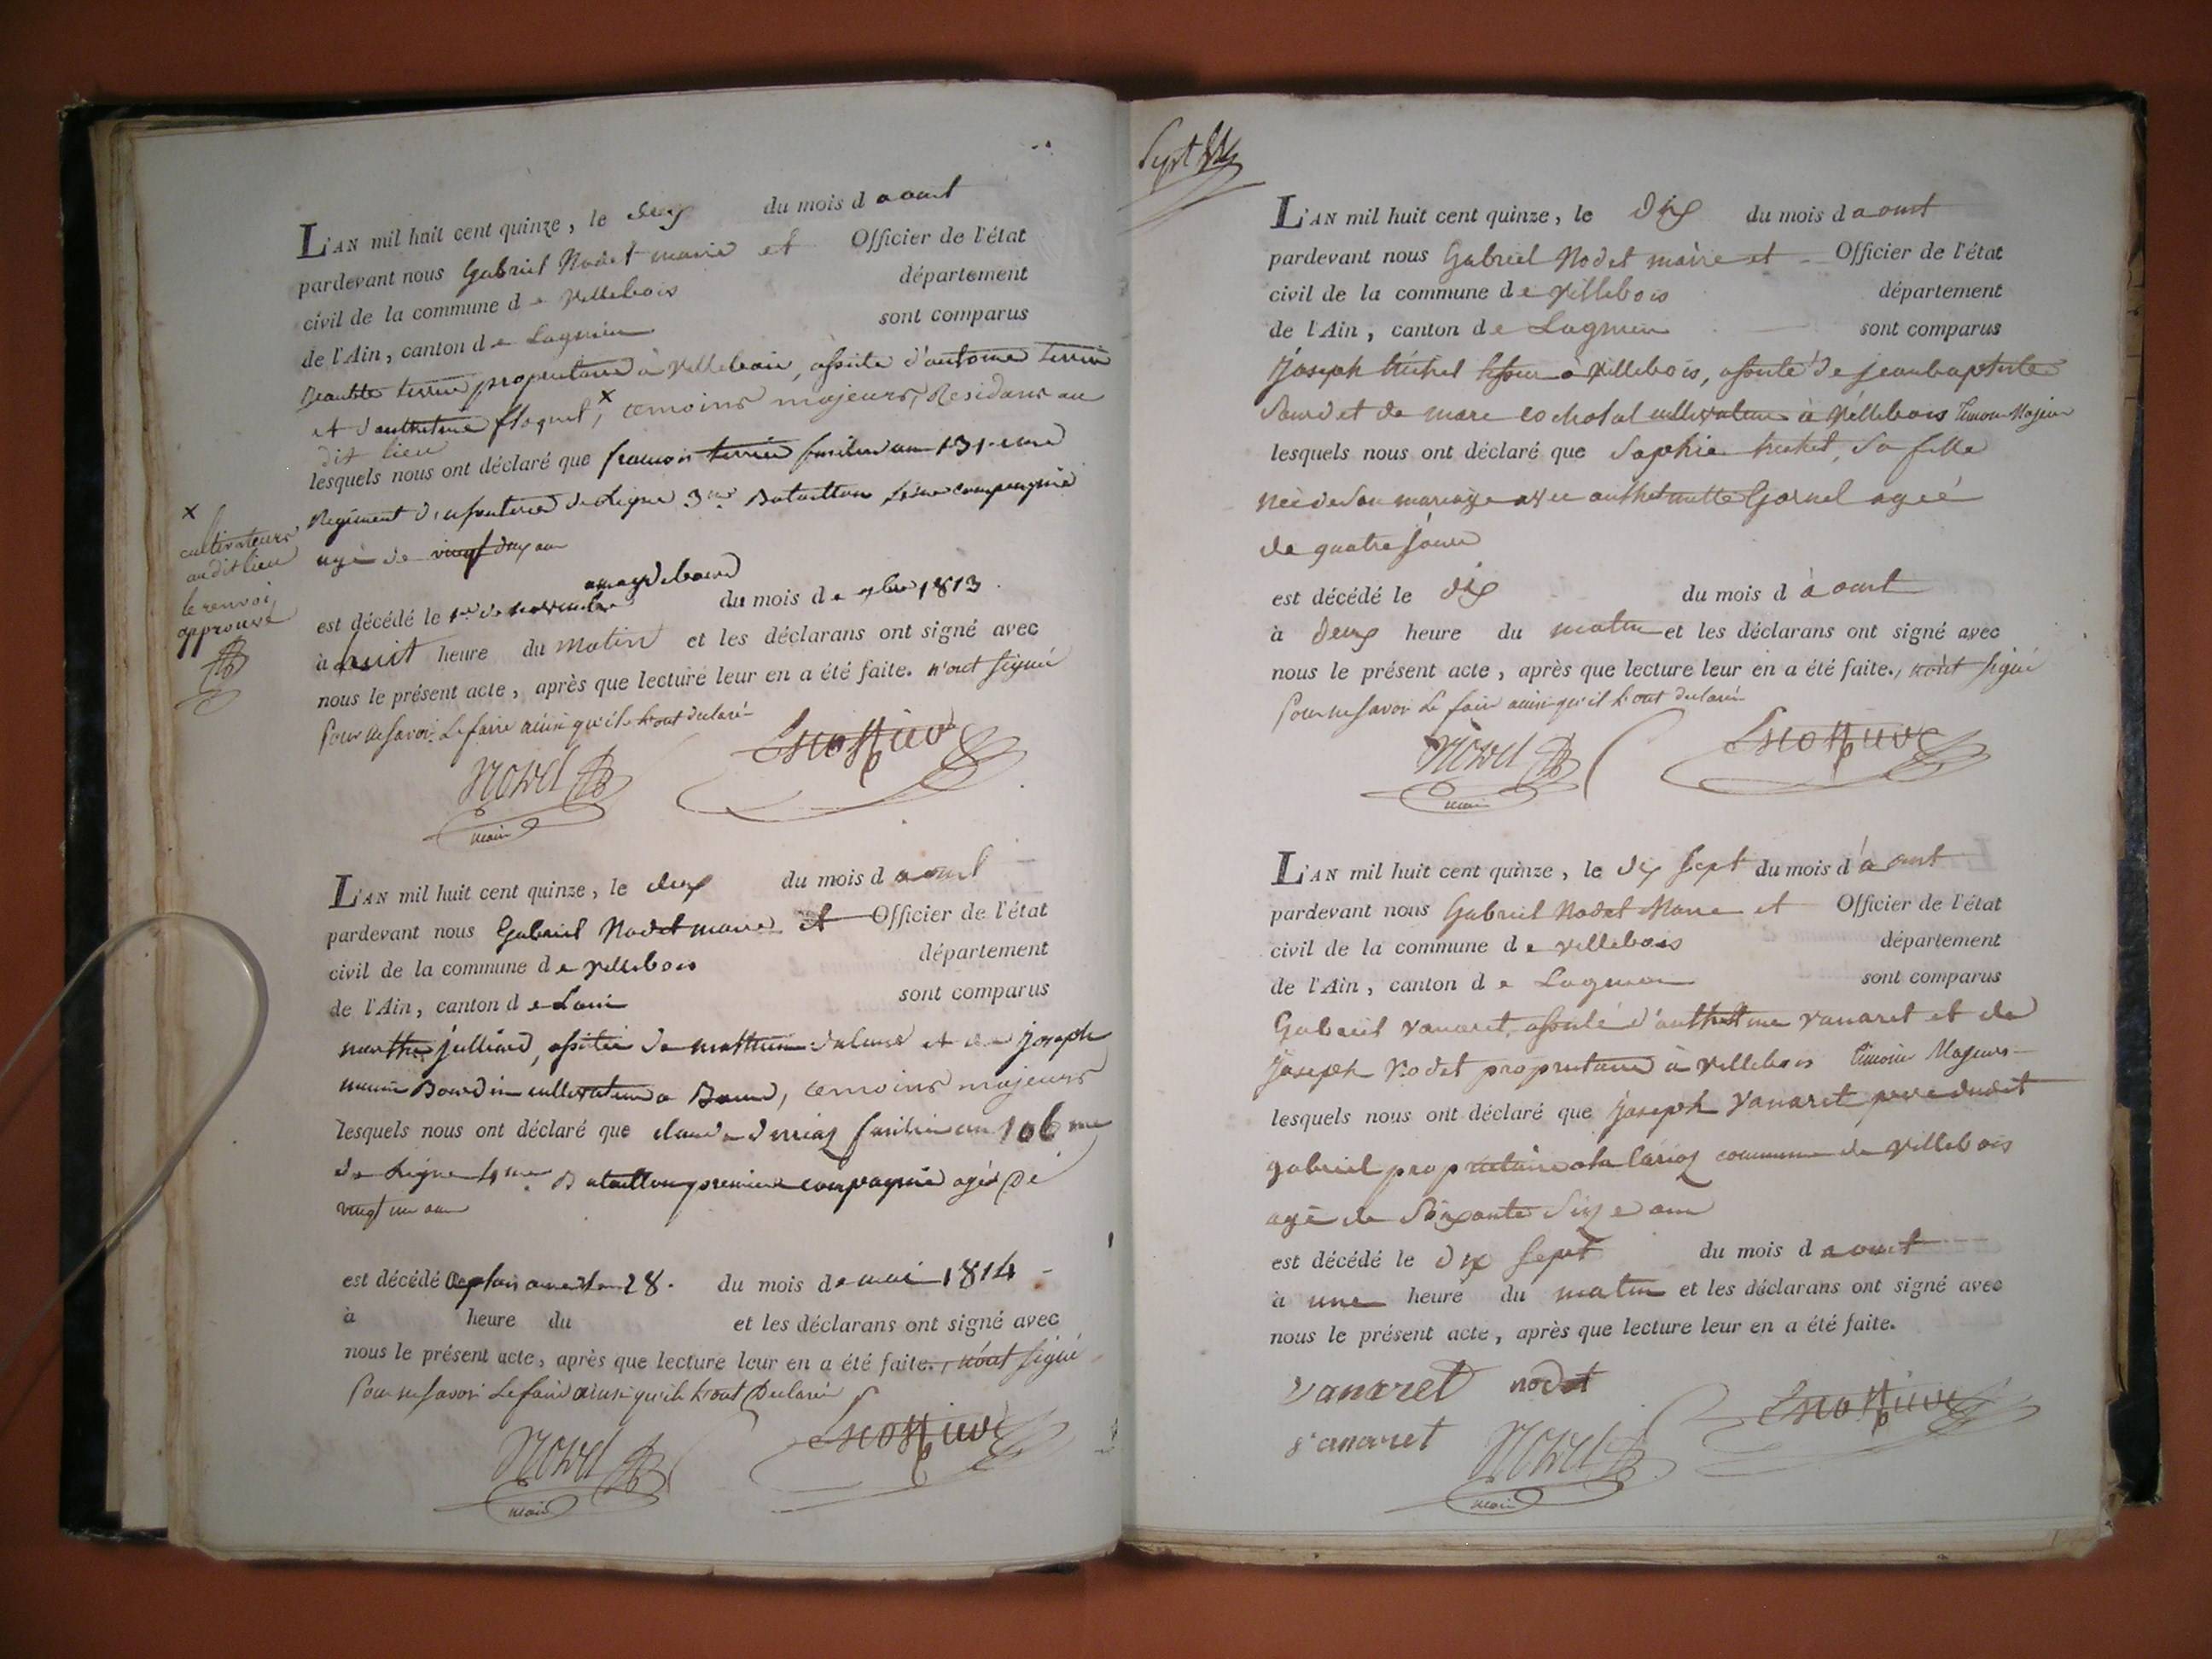 L'AN mil huit cent quinze, le deux du mois d aout
pardevant nous Gabriel Nodet maire et Officier de l'état
civil de la commune d e Villebois département
de l'Ain, canton d e Lagnieu sont comparus
terrier proprietaire à Villebois, assisté d'antoine terrier
et d'anthelme floquet, x temoins majeurs, Residans au
dit lieu
lesquels nous ont déclaré que francois terrier fusilier au 131.eme
Regiment d'infanterie de Ligne 3me Bataillon compagnie
agé de vingt deux ans
x
cultivateurs
audit lieu
le renvoi
approuvé
est décédé le 1er de novembre du mois d e 9bre 1813
à huit heure du matin et les déclarans ont signé avec
nous le présent acte, après que lecture leur en a été faite. n'ont signé
Pour ne savoir Le faire ainsi qu'ils l'ont declaré
Nodet
maire
L'AN mil huit cent quinze, le deux du mois d aout
pardevant nous Gabriel Nodet maire et Officier de l'état
civil de la commune d e Villebois département
de l'Ain, canton d e sont comparus
marthe julliard, et de joseph
cultivateur a, temoins majeurs
lesquels nous ont déclaré que claude fusilier au 106 me
de Ligne 4me Bataillon premiere compagnie agé de
vingt un ans
est décédé 28. du mois d e mai 1814
à heure du et les déclarans ont signé avec
nous le présent acte, après que lecture leur en a été faite., n'ont signé
Pour ne savoir Le faire ainsi qu'ils l'ont Declaré
Nodet
maire
Sept
L'AN mil huit cent quinze, le dix du mois d aout
pardevant nous Gabriel Nodet maire et Officier de l'état
civil de la commune d e Villebois département
de l'Ain, canton d e Lagnieu sont comparus
joseph trichet à Villebois, assisté de jean baptiste
et de marc cochonat cultivateur à Villebois temoin Majeur
lesquels nous ont déclaré que Sophie trichet, sa fille
née de son mariage avec anthelmette agée
de quatre jours
est décédé le dix du mois d aout
à deux heure du matin et les déclarans ont signé avec
nous le présent acte, après que lecture leur en a été faite., n'ont signé
Pour ne savoir Le faire ainsi qu'il l'ont declaré
Nodet
maire
L'AN mil huit cent quinze, le dix sept du mois d'aout
pardevant nous Gabriel Nodet Maire et Officier de l'état
civil de la commune d e Villebois département
de l'Ain, canton d e Lagnieu sont comparus
Gabriel Vanaret, assisté d'anthelme Vanaret et de
joseph Nodet proprietaire à Villebois temoin Majeurs
lesquels nous ont déclaré que joseph Vanaret pere dudit
gabriel proprietaire commune de Villebois
agé de Soixante Seize ans
est décédé le dix sept du mois d aout
à une heure du matin et les déclarans ont signé avec
nous le présent acte, après que lecture leur en a été faite.
vanaret nodet
vanaret Nodet
maire